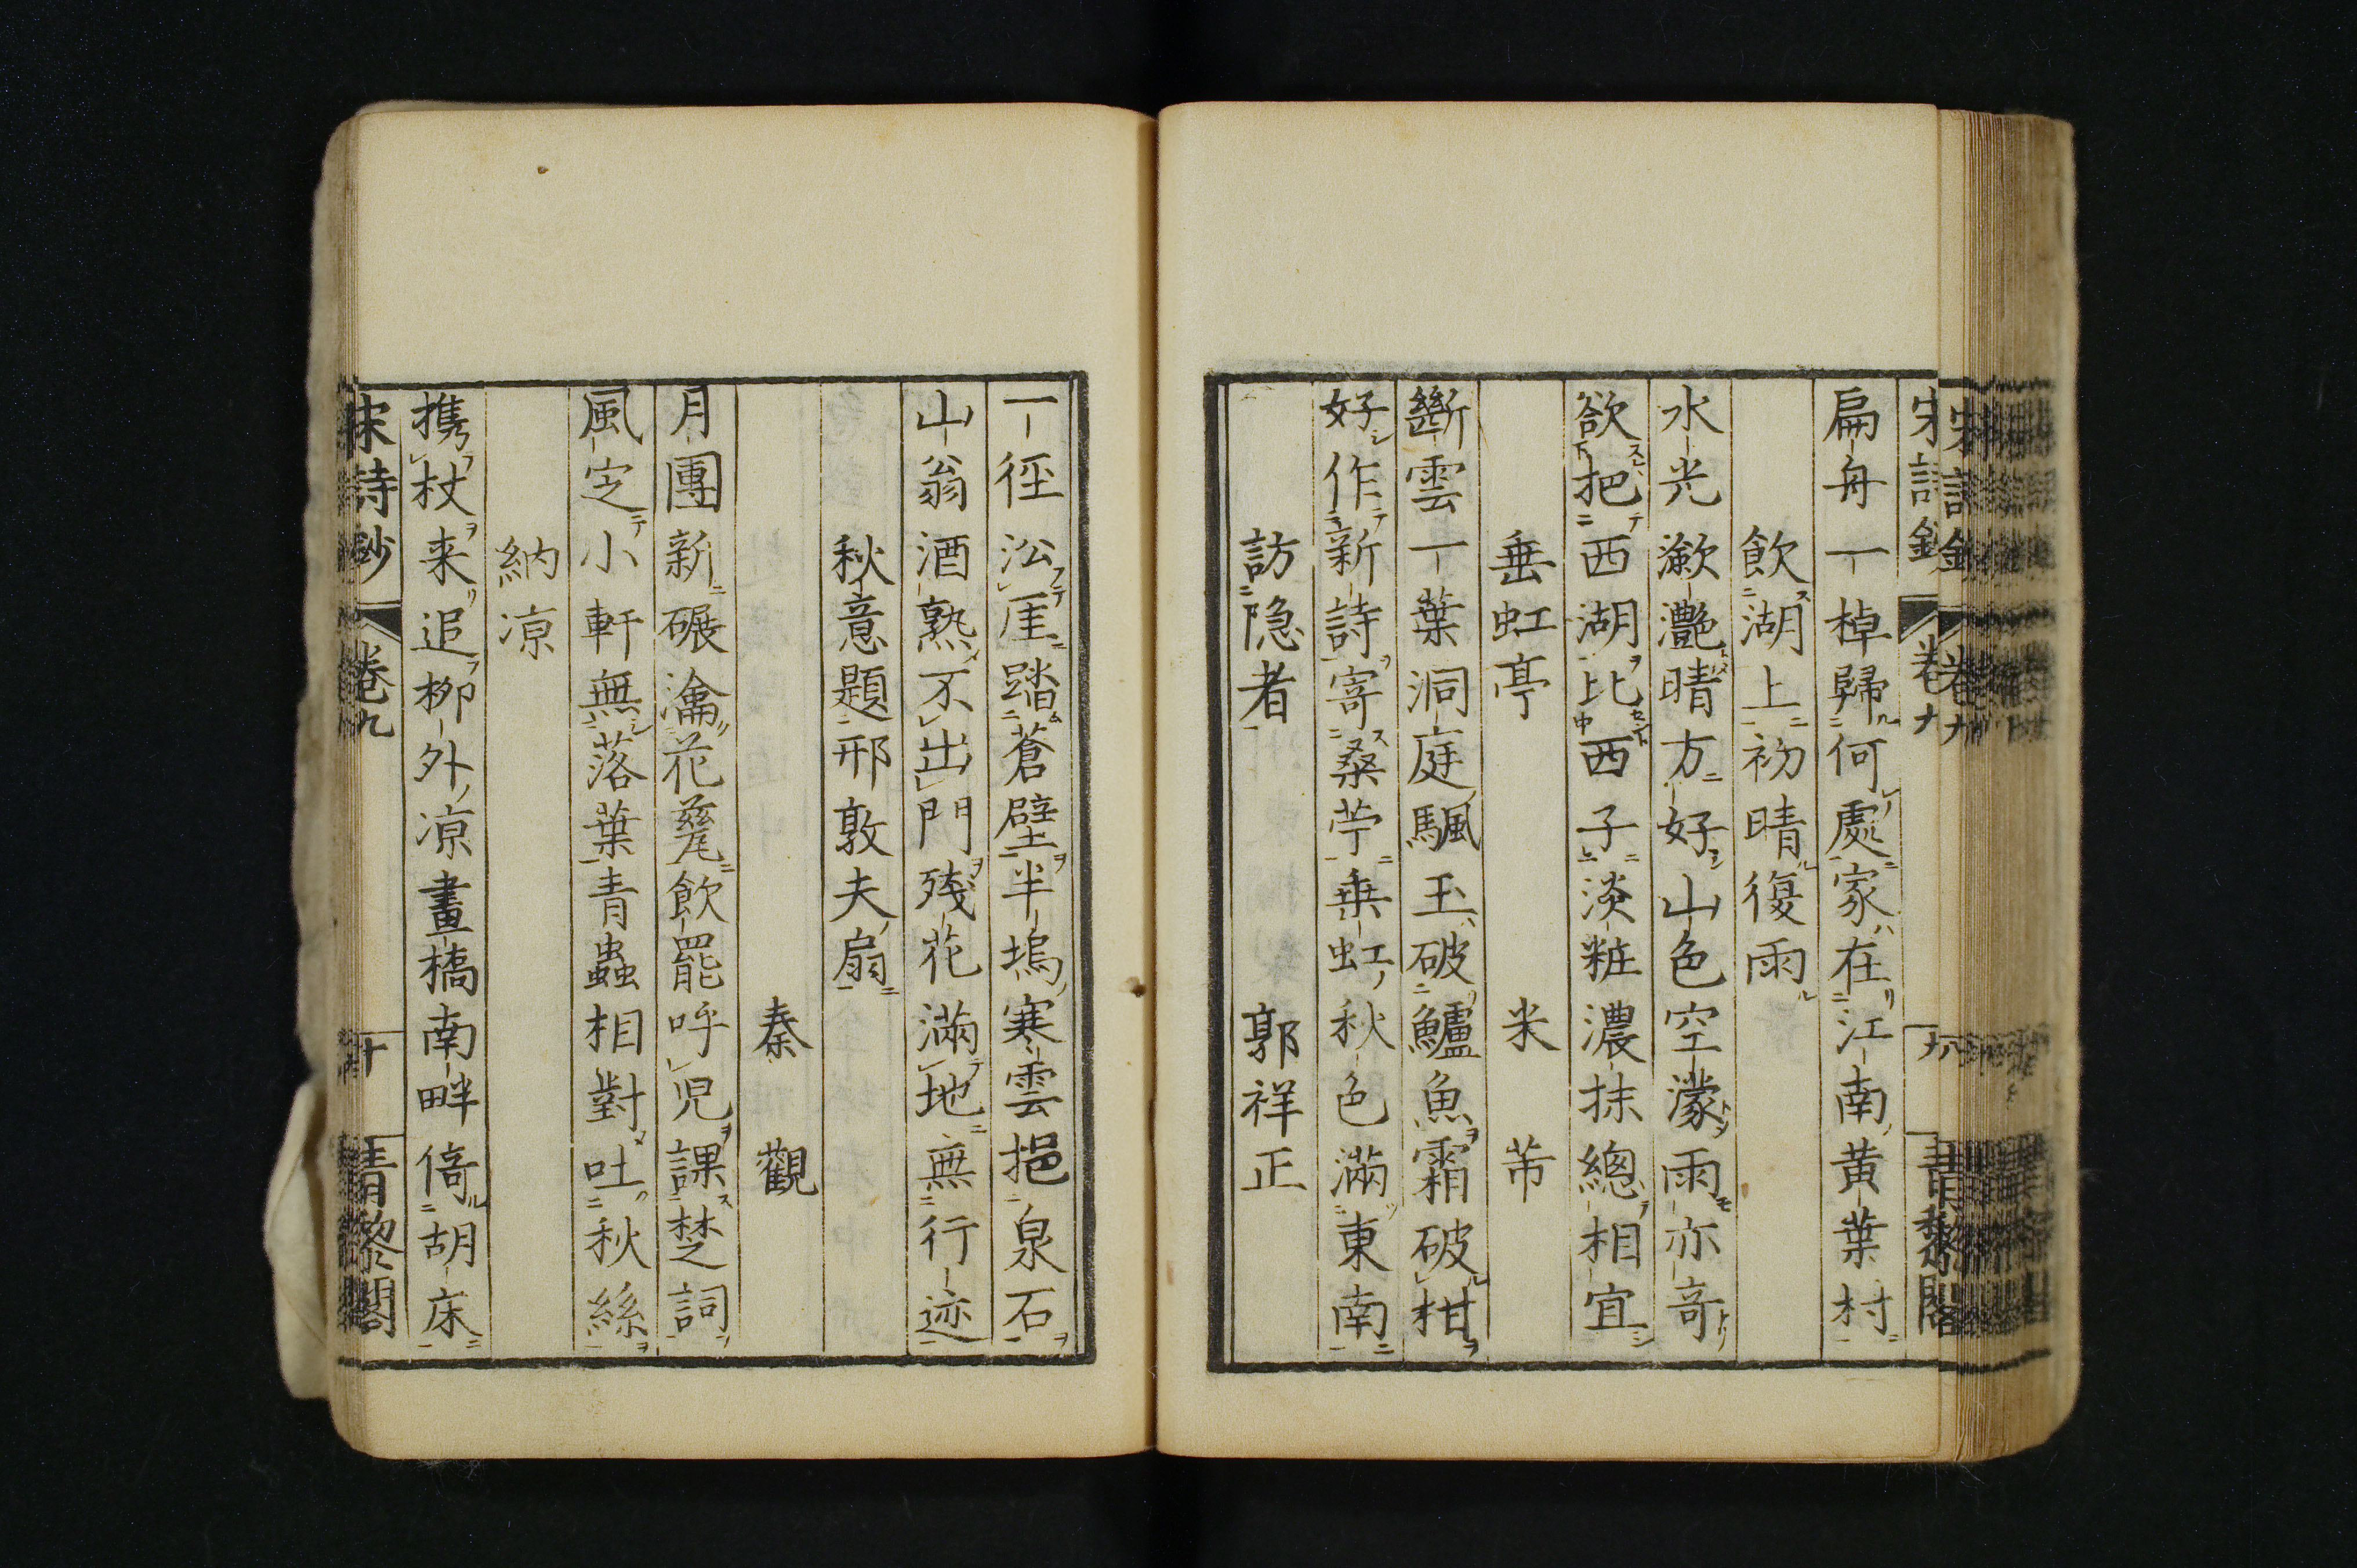 扁舟一棹歸何處家在江南黄葉村
飲湖上初晴復雨
水光瀲灧晴方好山色空濛雨亦奇
欲把西湖比西子淡粧濃抹總相宜
垂虹亭 米芾
斷雲一葉洞庭颿玉破鱸魚霜破柑
好作新詩寄桑苧垂虹秋色滿東南
訪隐者 郭祥正
一徑㳂厓踏蒼壁半塢寒雲挹泉石
山翁酒熟不出門殘花滿地無行迹
秋意題邢敦夫扇
秦觀
月團新碾瀹花甆飲罷呼児課楚詞
風定小軒無落葉青蟲相對吐秋絲
納凉
携杖来追柳外凉畫橋南畔倚胡床
宋詩鈔 卷九 十 青黎閣